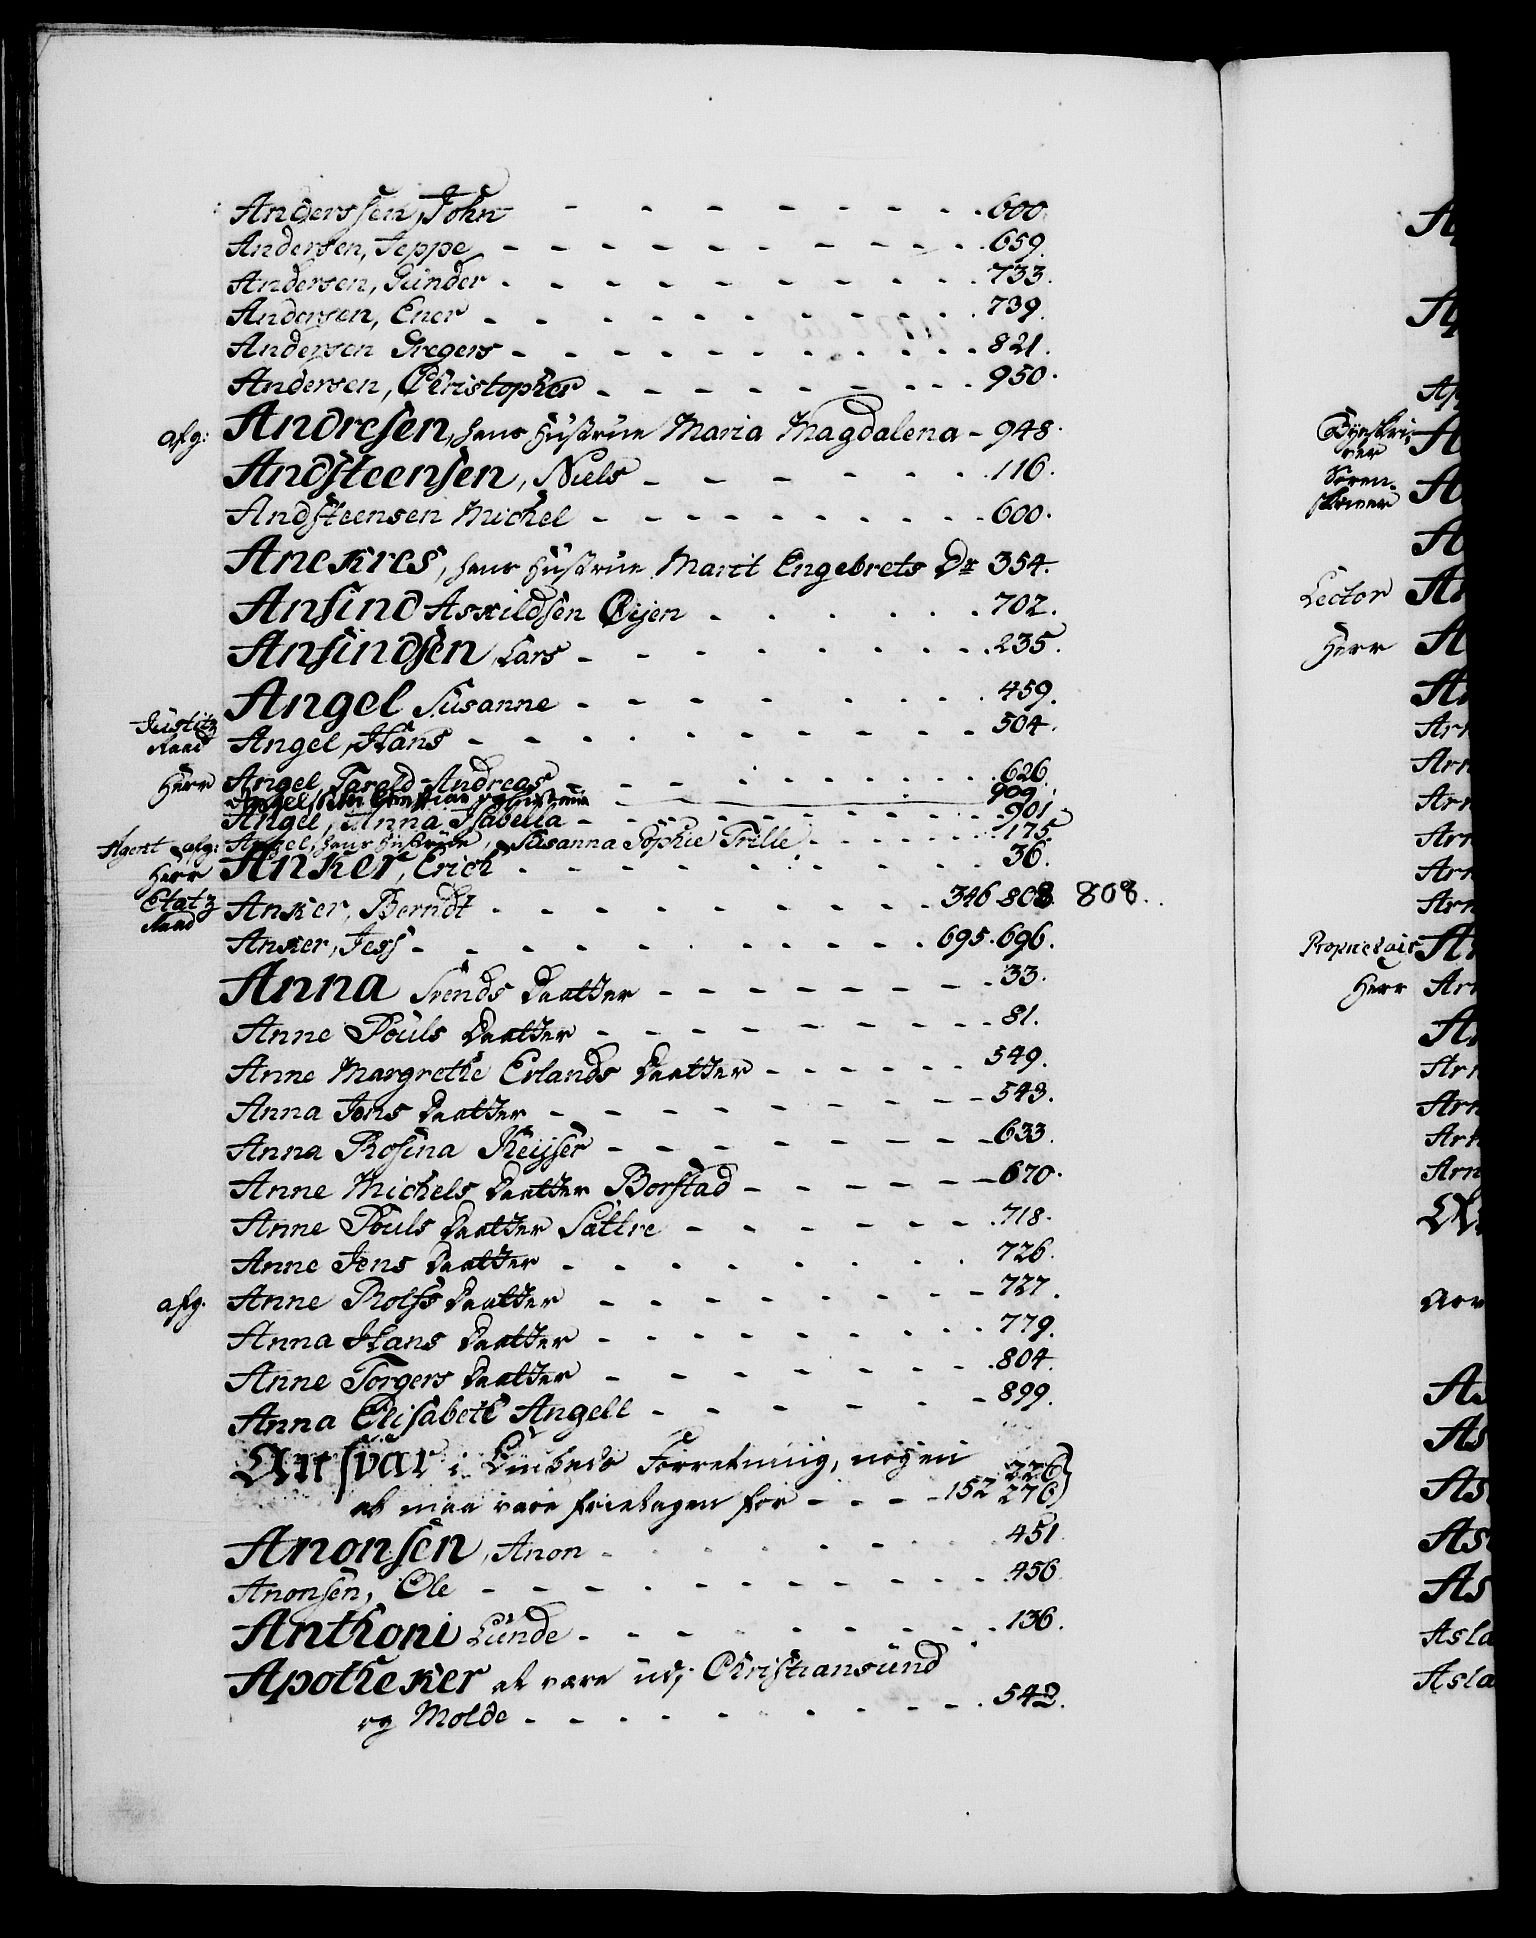 Anderssen, John - - - - - - - - 600.
Andersen, Jeppe - - - - - - - - - 659.
Andersen, Gunder - - - - - - - - - 733.
Andersen, Ener - - - - - - - - - 739.
Andersen Gregers - - - - - - - - - 821.
Andersen, Christopher - - - - - - - 950.
afg: Andresen, hans Hustrue Maria Magdalena - 948.
Andsteensen, Niels - - - - - - 116.
Andsteensen Michel - - - - - - - - 600.
Anekres, hans Hustrue Marit Engebrets Dr 354.
Ansind Askildsen Øijen - - - - - 702.
Ansindsen, Lars - - - - - - - - 235.
Angel Susanne - - - - - - - - 459.
Justitz Raad Angel, Hans - - - - - - - - - 504.
Herr Angel, Tarald Andreas - - - - - - - 626.
Angel, - - - 909.
Angel, Anna Isabella - - - - - - - 901.
Agent afg: Angel, hans Hustrue, Susanna Sophie Trille - - - - 175.
Herr Anker, Erich - - - - - - - - 36.
Etatz Raad Anker, Berndt - - - - - - - - 346 808 808.
Anker, Jess - - - - - - - - - 695. 696.
Anna Svends Daatter - - - - - - - 33.
Anne Pouls Daatter - - - - - - - - 81.
Anne Margrethe Erlands Daatter - - - - - - 549.
Anna Jens Daatter - - - - - - - - 543.
Anna Rosina Keyser - - - - - - - - 633.
Anne Michels Daatter Borstad - - - - - - 670.
Anne Pouls Daatter Sættre - - - - - - 718.
Anne Jens Daatter - - - - - - - - 726.
afg. Anne Rolfs Daatter - - - - - - - - 727.
Anna Hans Daatter - - - - - - - - 779.
Anne Torgers Daatter - - - - - - - 804.
Anna Elisabeth Angell - - - - - - 899.
Ansvar i Embeds Forretning, nogen 226
at maa være frietagen for - - - - 152 276
Anonsen, Anon - - - - - - - - 451.
Anonsen, Ole - - - - - - - - - 456
Anthoni Lunde - - - - - - - - 136.
Apotheker at være udj Christiansund
og Molde - - - - - - - - - 542.
Lector
Herr
Proprietair
Herr